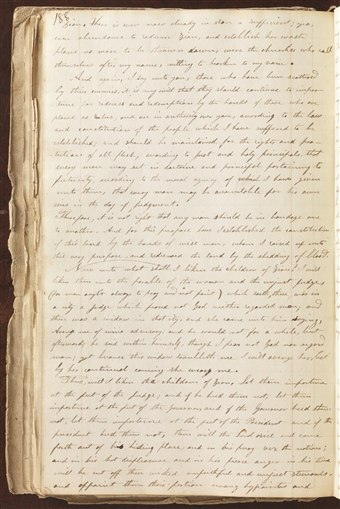 188
Zion, there is even now already in store a sufficient, yea,
even abundance to redeem Zion, and establish her waste
places no more to be thrown down, were the churches who call
themselves after my name, willing to hearken to my voice.
And again, I say unto you, those who have been scattered
by their enemies, it is my will that they should continue to impor-
tune for redress and redemption by the hands of those who are
placed as rulers, and are in authority over you, according to the laws
and constitution of the people, which I have suffered to be
established, and should be maintained for the rights and pro-
tection of all flesh, according to just and holy principals, that
every man may act in doctrine and principle pertaining to
futurity, according to the moral agency which I have given
unto them, that every man may be accountable for his own
sins in the day of judgement.
Therefore, it is not right that any man should be in bondage one
to another. And for this purpose have I established the constitution
of this land by the hands of wise men, whom I raised up unto
this very purpose, and redeemed the land by the shedding of blood.
Now unto what shall I liken the children of Zion? I will
liken them unto the parable of the woman and the unjust judge,
(for men ought always to pray and not faint) which saith, there was in
a city a judge which feared not God neither regarded man, and
there was a widow in that city, and she came unto him saying,
Avenge me of mine adversary; and he would not for a while, but
afterwards he said within himself: though I fear not God nor regard
man, yet because this widow troubleth me I will avenge her, lest
by her continual coming she weary me.
Thus, will I liken the children of Zion. Let them importune
at the feet of the judge; and if he heed them not, let them
importune at the feet of the Governor; and if the Governor heed them
not, let them importune at the feet of the President and if the
president heed them not, then will the Lord arise and come
forth out of his hiding place, and in his fury vex the nation;
and in his hot displeasure and in his fierce anger in his time
will he cut off those wicked unfaithful and unjust stewards
and appoint them their portion among hypocrites and